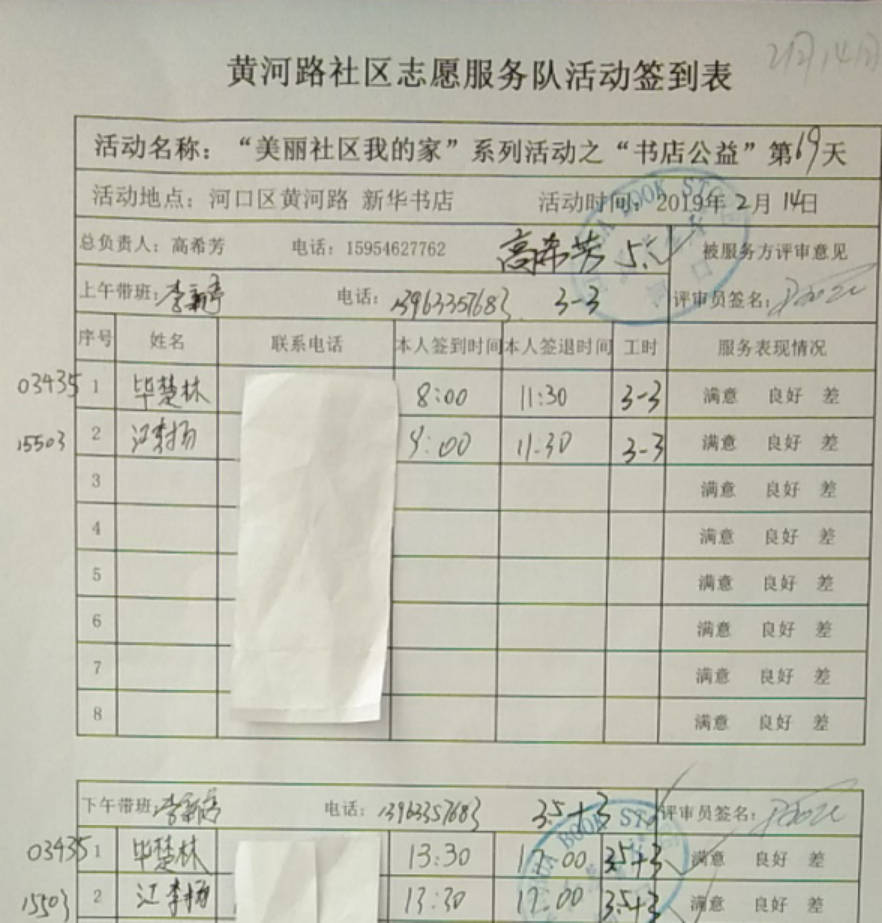 2月14日
黄河路社区志愿服务队活动签到表
活动名称：“美丽社区我的家”系列活动之“书店公益”第19天
活动地点：河口区黄河路 新华书店 活动时间：2019年2月14日
总负责人：高希芳 电话：15954627762 高希芳 5.5 被服务方评审意见
上午带班： 电话：13963357683 3-3 评审员签名：
序号 姓名 联系电话 本人签到时间 本人签退时间 工时 服务表现情况
03435 1 毕楚林 8:00 11:30 3-3 满意 良好 差
15503 2 江李扬 9:00 11:30 3-3 满意 良好 差
3 满意 良好 差
4 满意 良好 差
5 满意 良好 差
6 满意 良好 差
7 满意 良好 差
8 满意 良好 差
下午带班： 电话：13963357683 3.5+3 评审员签名：
03435 1 毕楚林 13:30 17:00 3.5+3 满意 良好 差
15503 2 江李扬 13:30 17:00 3.5+3 满意 良好 差
BOOK STORE
BOOK ST